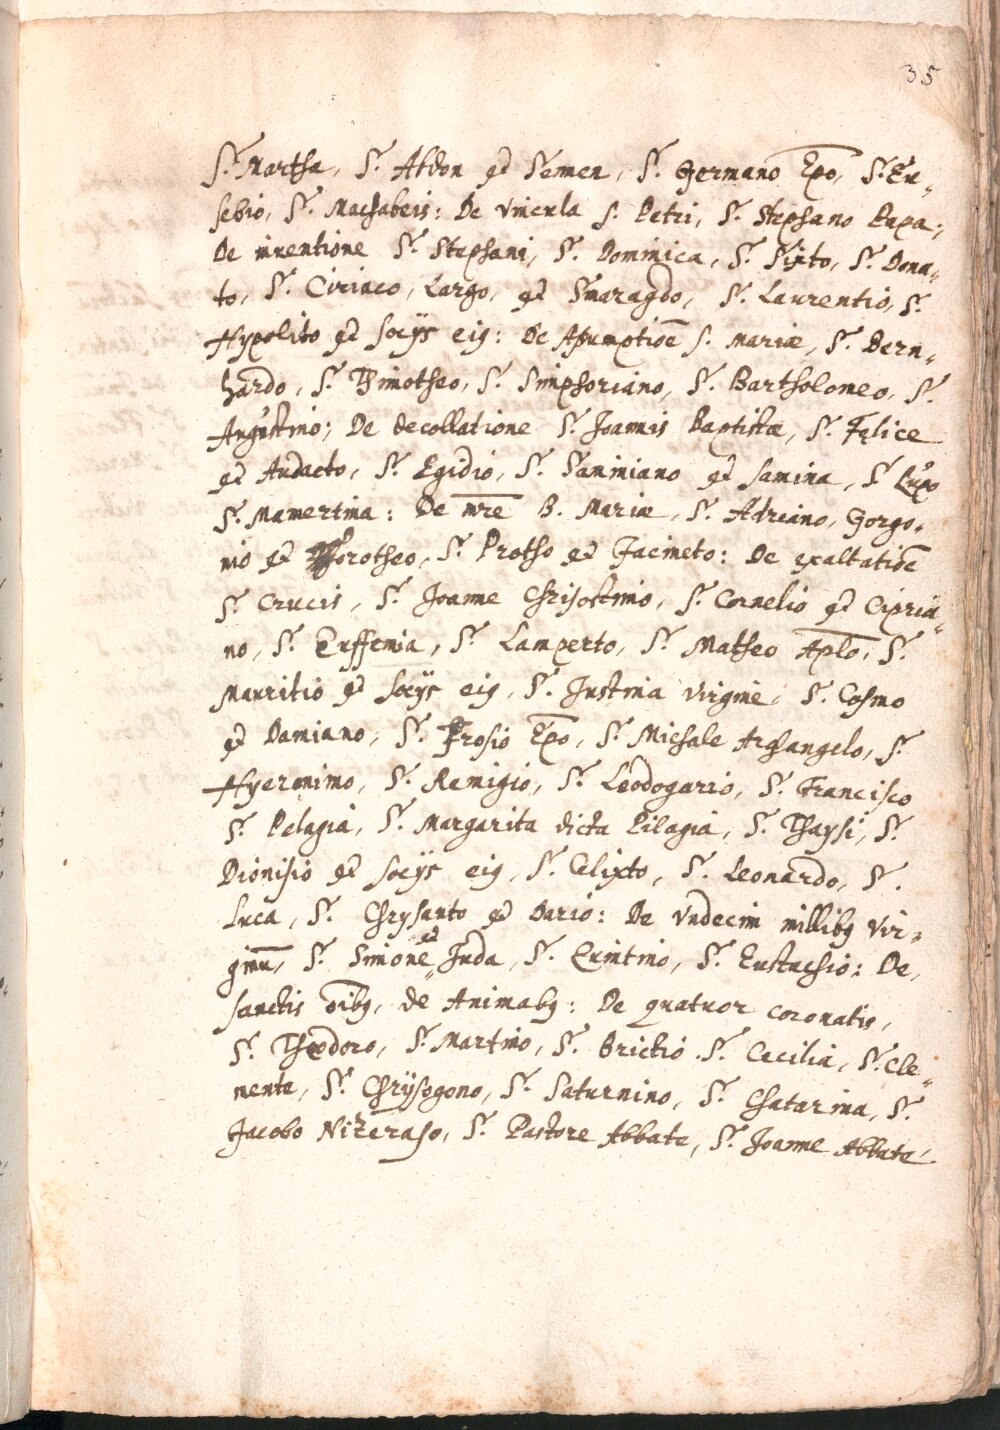 35
S. Martha, S. Abdon et Semen, S. Germano Epo, S. Eu„
sebio, S. Machabeis: De Vincula S. Petri, S. Stephano Papa;
De inventione S. Stephani, S. Dominica, S. Sixto, S. Dona„
to, S. Ciriaco, Largo, et Smaragdo, S. Laurentio, S.
Hypolito et socÿs eiꝰ: De Assumptioē S. Mariæ, S. Bern„
hardo, S. Timotheo, S. Simphoriano, S. Bartholomeo, S.
Augustino; De decollatione S. Joannis Baptistæ, S. Felice
et Audacto, S. Egidio, S. Sauiniano et Sauina, S. Lupo
S. Mamertina: De nr̄e B. Mariæ, S. Adriano, Gorgo„
nio et Dorotheo, S. Protho et Jacincto: De exaltatioē
S. Crucis, S. Joanne Chrisostimo, S. Cornelio et Cipria„
no, S. Euffemia, S. Lamperto, S. Matheo Aplo, S.
Mauritio et socÿs eiꝰ, S. Justina Virgine, S. Cosmo
et Damiano, S. Frosio Epo, S. Michale Archangelo, S.
Hyeronimo, S. Remigio, S. Leodogario, S. Francisco
S. Pelagia, S. Margarita dicta Pilagia, S. Thaysi, S.
Dionisio et socÿs eiꝰ, S. Calixto, S. Leonardo, S.
Luca, S. Chrysanto et Dario: De Vndecim millibꝰ Vir„
ginū, S. Simone et Juda, S. Quintino, S. Eustachio: De,
sanctis oībꝰ, de Animabꝰ: De quatuor coronatis,
S. Theodoro, S. Martino, S. Brictio S. Cecilia, S. Cle„
mente, S. Chrÿsogono, S. Saturnino, S. Chatarina, S.
Jacobo Nizeraso, S. Pastore Abbate, S. Joanne Abbate.